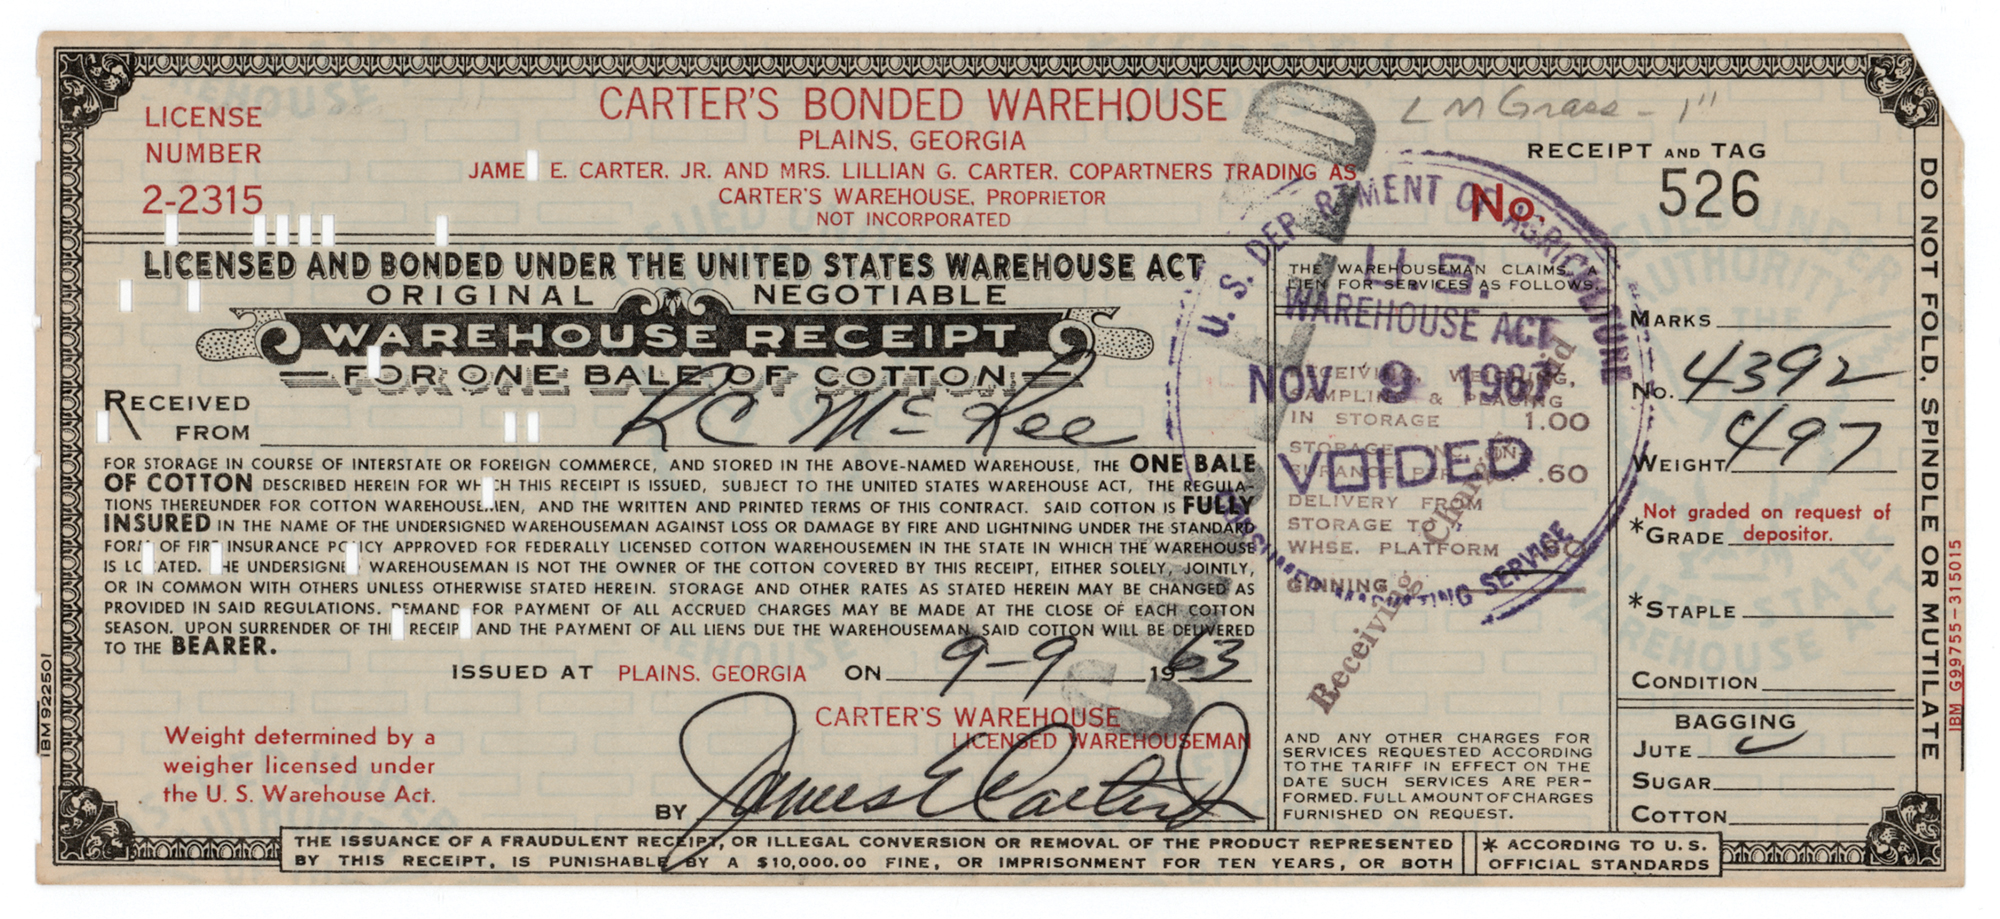 LICENSE
NUMBER
2-2315
CARTER'S BONDED WAREHOUSE
PLAINS, GEORGIA
JAME E. CARTER, JR. AND MRS. LILLIAN G. CARTER, COPARTNERS TRADING AS
CARTER'S WAREHOUSE, PROPRIETOR
NOT INCORPORATED
L M Grass - 1"
RECEIPT AND TAG
No. 526
LICENSED AND BONDED UNDER THE UNITED STATES WAREHOUSE ACT
ORIGINAL NEGOTIABLE
WAREHOUSE RECEIPT
FOR ONE BALE OF COTTON
RECEIVED
FROM R C McKee
FOR STORAGE IN COURSE OF INTERSTATE OR FOREIGN COMMERCE, AND STORED IN THE ABOVE-NAMED WAREHOUSE, THE ONE BALE
OF COTTON DESCRIBED HEREIN FOR WH CH THIS RECEIPT IS ISSUED, SUBJECT TO THE UNITED STATES WAREHOUSE ACT, THE REGULA-
TIONS THEREUNDER FOR COTTON WAREHOUSEMEN, AND THE WRITTEN AND PRINTED TERMS OF THIS CONTRACT. SAID COTTON IS FULLY
INSURED IN THE NAME OF THE UNDERSIGNED WAREHOUSEMAN AGAINST LOSS OR DAMAGE BY FIRE AND LIGHTNING UNDER THE STANDARD
FORM OF FIRE INSURANCE POLICY APPROVED FOR FEDERALLY LICENSED COTTON WAREHOUSEMEN IN THE STATE IN WHICH THE WAREHOUSE
IS LOCATED. THE UNDERSIGNED WAREHOUSEMAN IS NOT THE OWNER OF THE COTTON COVERED BY THIS RECEIPT, EITHER SOLELY, JOINTLY,
OR IN COMMON WITH OTHERS UNLESS OTHERWISE STATED HEREIN. STORAGE AND OTHER RATES AS STATED HEREIN MAY BE CHANGED AS
PROVIDED IN SAID REGULATIONS. DEMAND FOR PAYMENT OF ALL ACCRUED CHARGES MAY BE MADE AT THE CLOSE OF EACH COTTON
SEASON. UPON SURRENDER OF THE RECEIPT AND THE PAYMENT OF ALL LIENS DUE THE WAREHOUSEMAN SAID COTTON WILL BE DELIVERED
TO THE BEARER.
ISSUED AT PLAINS, GEORGIA ON 9-9 1963
Weight determined by a
weigher licensed under
the U. S. Warehouse Act.
CARTER'S WAREHOUSE
LICENSED WAREHOUSEMAN
BY James E Carter Jr
THE ISSUANCE OF A FRAUDULENT RECEIPT, OR ILLEGAL CONVERSION OR REMOVAL OF THE PRODUCT REPRESENTED
BY THIS RECEIPT, IS PUNISHABLE BY A $10,000.00 FINE, OR IMPRISONMENT FOR TEN YEARS, OR BOTH
* ACCORDING TO U. S.
OFFICIAL STANDARDS
THE WAREHOUSEMAN CLAIMS A
LIEN FOR SERVICES AS FOLLOWS
RECEIVING, WEIGHING,
SAMPLING & PLACING
IN STORAGE 1.00
.60
DELIVERY FROM
STORAGE TO
WHSE. PLATFORM
GINNING
AND ANY OTHER CHARGES FOR
SERVICES REQUESTED ACCORDING
TO THE TARIFF IN EFFECT ON THE
DATE SUCH SERVICES ARE PER-
FORMED. FULL AMOUNT OF CHARGES
FURNISHED ON REQUEST.
U. S. DEPARTMENT OF AGRICULTURE
U.S.
WAREHOUSE ACT
NOV 9 1967
VOIDED
CONSUMER MARKETING SERVICE
Receiving Charges Paid
CANCELLED
MARKS
No. 4392
WEIGHT 497
*GRADE Not graded on request of
depositor.
*STAPLE
CONDITION
BAGGING
JUTE
SUGAR
COTTON
DO NOT FOLD, SPINDLE OR MUTILATE
IBM G99755-315015
IBM 922501